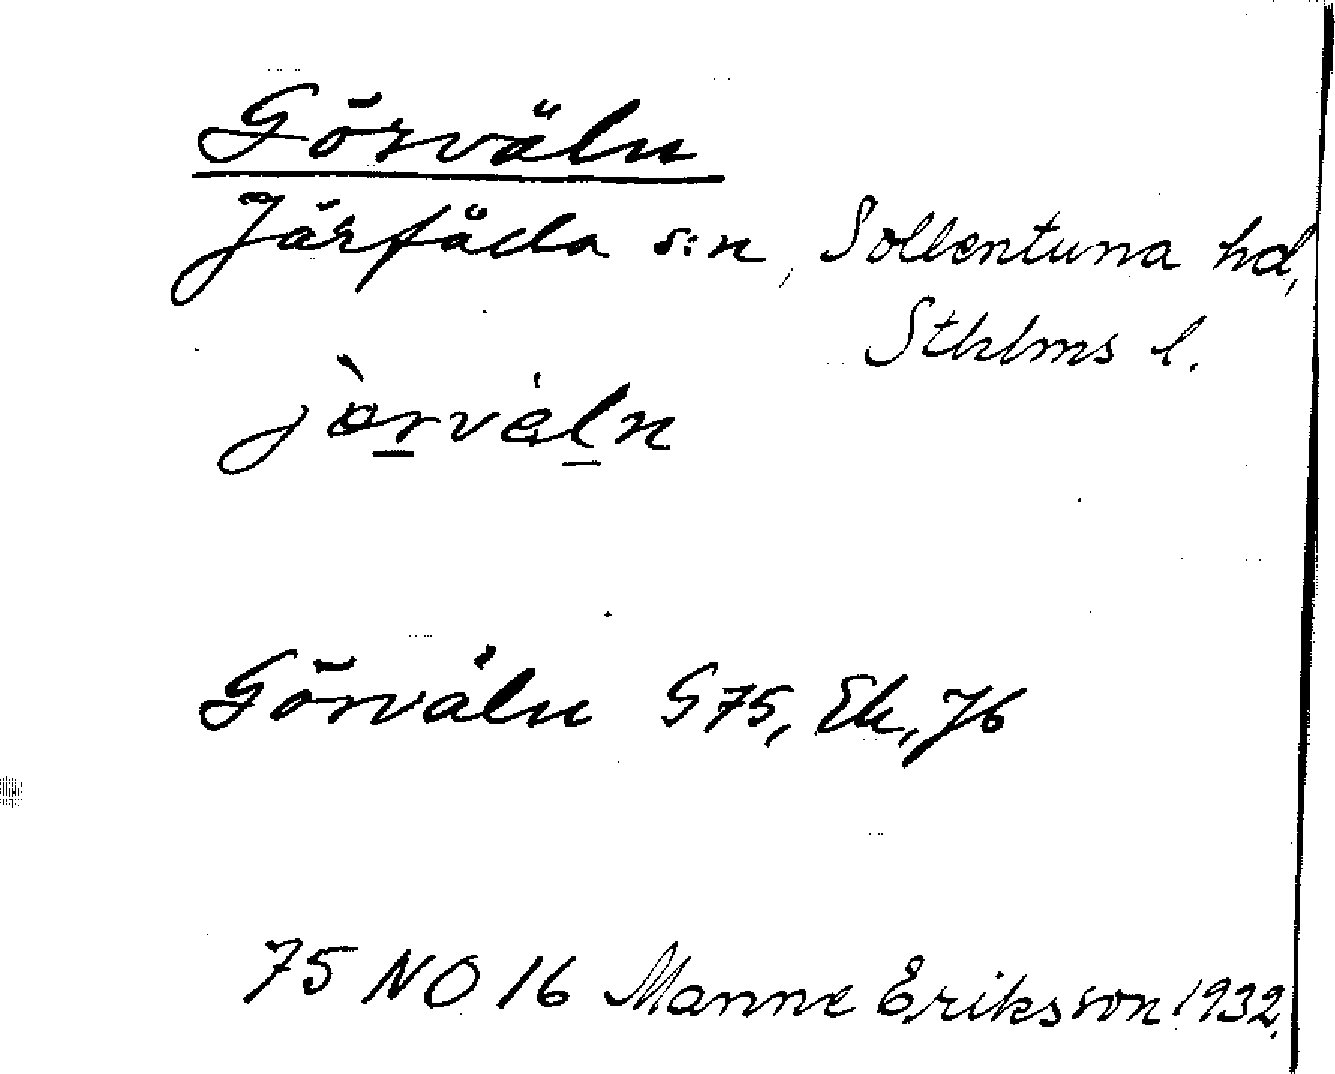 Görväln
Järfälla s:n, Sollentuna hd,
Sthlms l.
jòrvàln
Görväln G75, Ek, J6
75 NO 16 Manne Eriksson 1932.